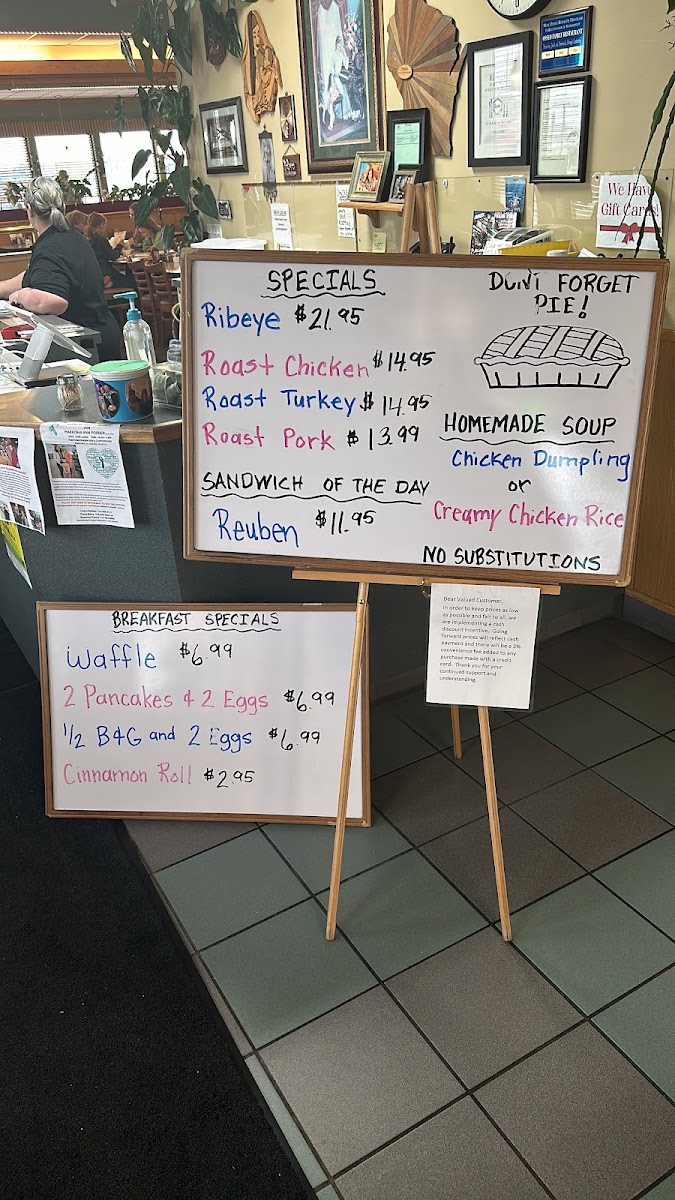 SPECIALS
Ribeye $21.95
Roast Chicken $14.95
Roast Turkey $14.95
Roast Pork $13.99
SANDWICH OF THE DAY
Reuben $11.95
DON'T FORGET
PIE!
HOMEMADE SOUP
Chicken Dumpling
or
Creamy Chicken Rice
NO SUBSTITUTIONS
BREAKFAST SPECIALS
Waffle $6.99
2 Pancakes & 2 Eggs $6.99
1/2 B&G and 2 Eggs $6.99
Cinnamon Roll $2.95
Dear Valued Customer,
In order to keep prices as low
as possible and fair to all, we
are implementing a cash
discount incentive. Going
forward prices will reflect cash
payment and there will be a 3%
convenience fee added to any
purchase made with a credit
card. Thank you for your
continued support and
understanding.
We Have
Gift Cards!